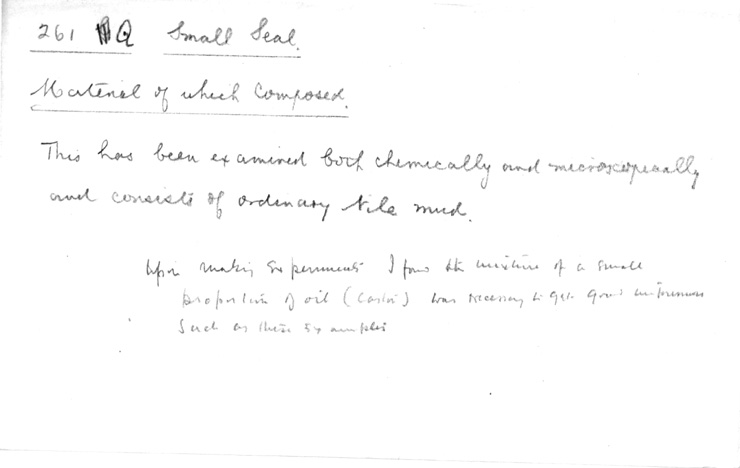 261 Q Small Seal.
Material of which Composed.
This has been examined both chemically and microscopically
and consists of ordinary Nile mud.
Upon making experiments I found the mixture of a small
proportion of oil (Castor) was necessary to get good impressions
such as these examples